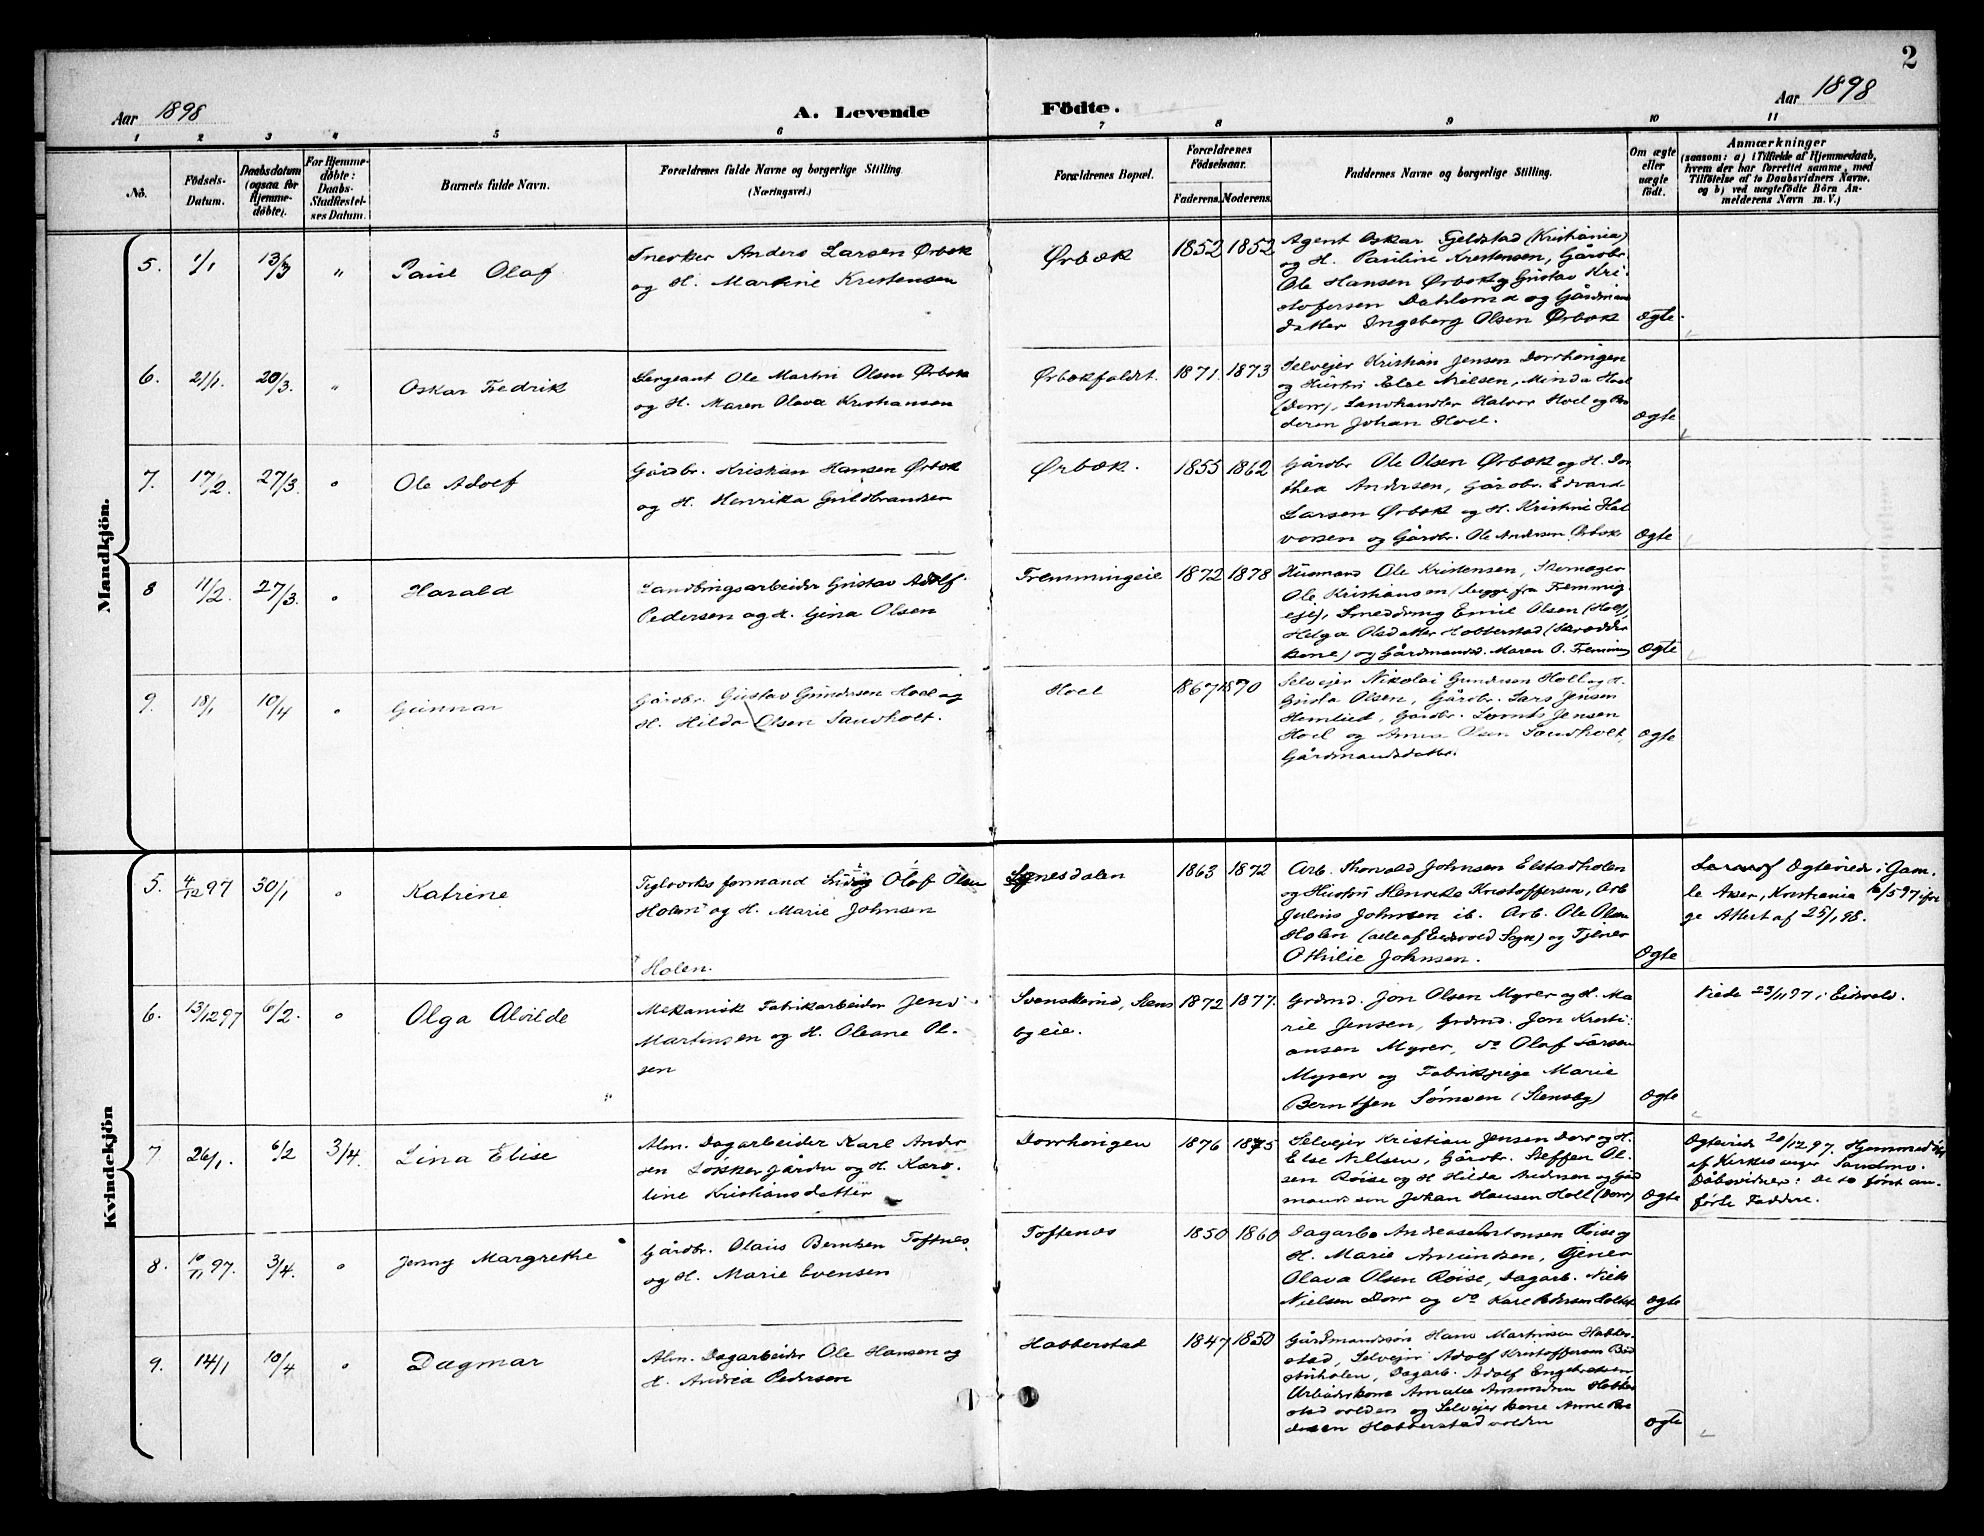 2
Aar 1898
A. Levende Födte.
Aar 1898
1 2 3 4 5 6 7 8 9 10 11
No.
Födsels-Datum.
Daabsdatum (ogsaa for Hjemme-døbte).
For Hjemme-døbte: Daabs-Stadfæstel-ses Datum.
Barnets fulde Navn.
Forældrenes fulde Navne og borgerlige Stilling. (Næringsvei.)
Forældrenes Bopæl.
Forældrenes Fødselsaar.
Faderens. Moderens.
Faddernes Navne og borgerlige Stilling.
Om ægte eller uægte født.
Anmærkninger
(saasom: a) i Tilfælde af Hjemmedaab, hvem der har forrettet samme, med Tilføielse af to Daabsvidners Navne, og b) ved uægtefödte Börn An-melderens Navn m. V.)
Mandkjön.
5. 1/1 13/3 " Paul Olaf
Snedker Anders Larsen Ørbæk
og H. Martine Kristensen
Ørbæk 1852 1852
Agent Oskar Fjeldstad (Kristiania)
og H. Pauline Kristensen, Gårdbr.
Ole Hansen Ørbæk og Gustav Kri-
stofersen Dahl og Gårdman
datter Ingeborg Olsen Ørbæk
Ægte.
6. 21/1. 20/3. " Oskar Fredrik
Sergeant Ole Martin Olsen Ørbæk
og H. Maren Olava Kristiansen
Ørbækfaldt. 1871. 1873
Selvejer Kristian Jensen Dorrhøugen
og Hustru Else Nielsen, Minda Hoel
(Dorr), Landhandler Halvor Hoel og
Johan Hoel.
Ægte
7. 17/2. 27/3. " Ole Adolf
Gårdbr. Kristian Hansen Ørbæk
og H. Henrika Guldbrandsen
Ørbæk. 1855 1862
Gårdbr Ole Olsen Ørbæk og H. Do-
rthea Andersen, Gårdbr. Edvard
Larsen Ørbæk og H. Kristine Hal
vorsen og Gårdbr. Ole Andersen Ørbæk
Ægte
8 11/2. 27/3. " Harald
Landbrugsarbeider Gustav Adolf
Pedersen og H. Gina Olsen
Fremmingeie 1872 1878
Husmand Ole Kristensen, Skomager
Ole Kristiansen (begge fra Fremming
eje), Smeddreng Emil Olsen (Hoel),
Helga Olsdatter Habberstad (Skrædder
kone) og Gårdmandsd. Maren O. Fremming
Ægte
9. 18/1 10/4 " Gunnar
Gårdbr. Gustav Gundersen Hoel og
H. Hilda Olsen Sandholt.
Hoel 1867 1870
Selvejer Nikolai Gundersen Hoel og H.
Gusta Olsen, Gårdbr. Lars Jensen
Hemlied, Gårdbr. Jensen
Hoel og Anna Olsen Sandholt,
Gårdmandsdatter.
Ægte
Kvindekjön
5. 4/12 97 30/1 " Katrine
Teglværks formand Ludvig Olaf Olsen
Holen og H. Marie Johnsen
Holen.
Lynesdalen 1863 1872
Arb. Thorvald Johnsen Elstadholen
og Hustru Henrika Kristoffersen, Arb
Julius Johnsen ib. Arb. Ole Olsen
Holen (alle af Eidsvold Sogn) og Tjener
Othilie Johnsen.
Ægte
Ægteviede i Gam-
le Aker, Kristiania 16/5 97 iføl
ge Attest af 25/1 98.
6. 13/12 97 6/2. " Olga Alvilde
Mekanisk Fabrikarbeider Jens
Martinsen og H. Oleane Ol-
sen
Svenskerud, Stens
byeie. 1872 1877.
Grdmd. Jon Olsen Myrer og H. Ma
rie Jensen, Grdmd. Jon Kristi-
ansen Myrer, do Olaf Larsen
Myren og Fabrikpige Marie
Berntsen Sømoen (Stensby)
Ægte
Viede 23/11 97 i Eidsvold.
7 26/1. 6/2 3/4. Lina Elise
Alm. Dagarbeider Karl Ander
sen Løskergården og H. Karo-
line Kristiansdatter
Dorrhøugen 1876 1875
Selvejer Kristian Jensen Dorr og H.
Else Nielsen, Gårdbr. Steffen Ol-
sen Røise og H Hilda Andersen og Gård
mands søn Johan Hansen Hoel (Dorr)
Ægte
Ægteviede 20/12 97. Hjemmedøbt
af Kirkesanger Sandmo.
Dåbsvidner: De to først an-
førte Faddere.
8. 10/11 97. 3/4. " Jenny Margrethe
Gårdbr. Olaus Berntsen Toftnes
og H. Marie Evensen
Toftenæs 1850 1860
Dagarb. Andreas Antonsen Røise og
H. Marie Amundsen, Tjener
Olava Olsen Røise, Dagarb. Niels
Nielsen Dorr og do Karl Pedersen
Ægte
9. 14/1 10/4 " Dagmar
Alm. Dagarbeider Ole Hansen og
H. Andrea Pedersen
Habberstad 1847 1850
Gårdmandssøn Hans Martinsen Habber-
stad, Selvejer Adolf Kristoffersen Bød
stuholen, Dagarb. Adolf Engebretsen
Arbeiderkone Amalie Amundsen Habber
stadvolden og Selvejerkone Anne Pe
dersen Habberstadvolden
Ægte